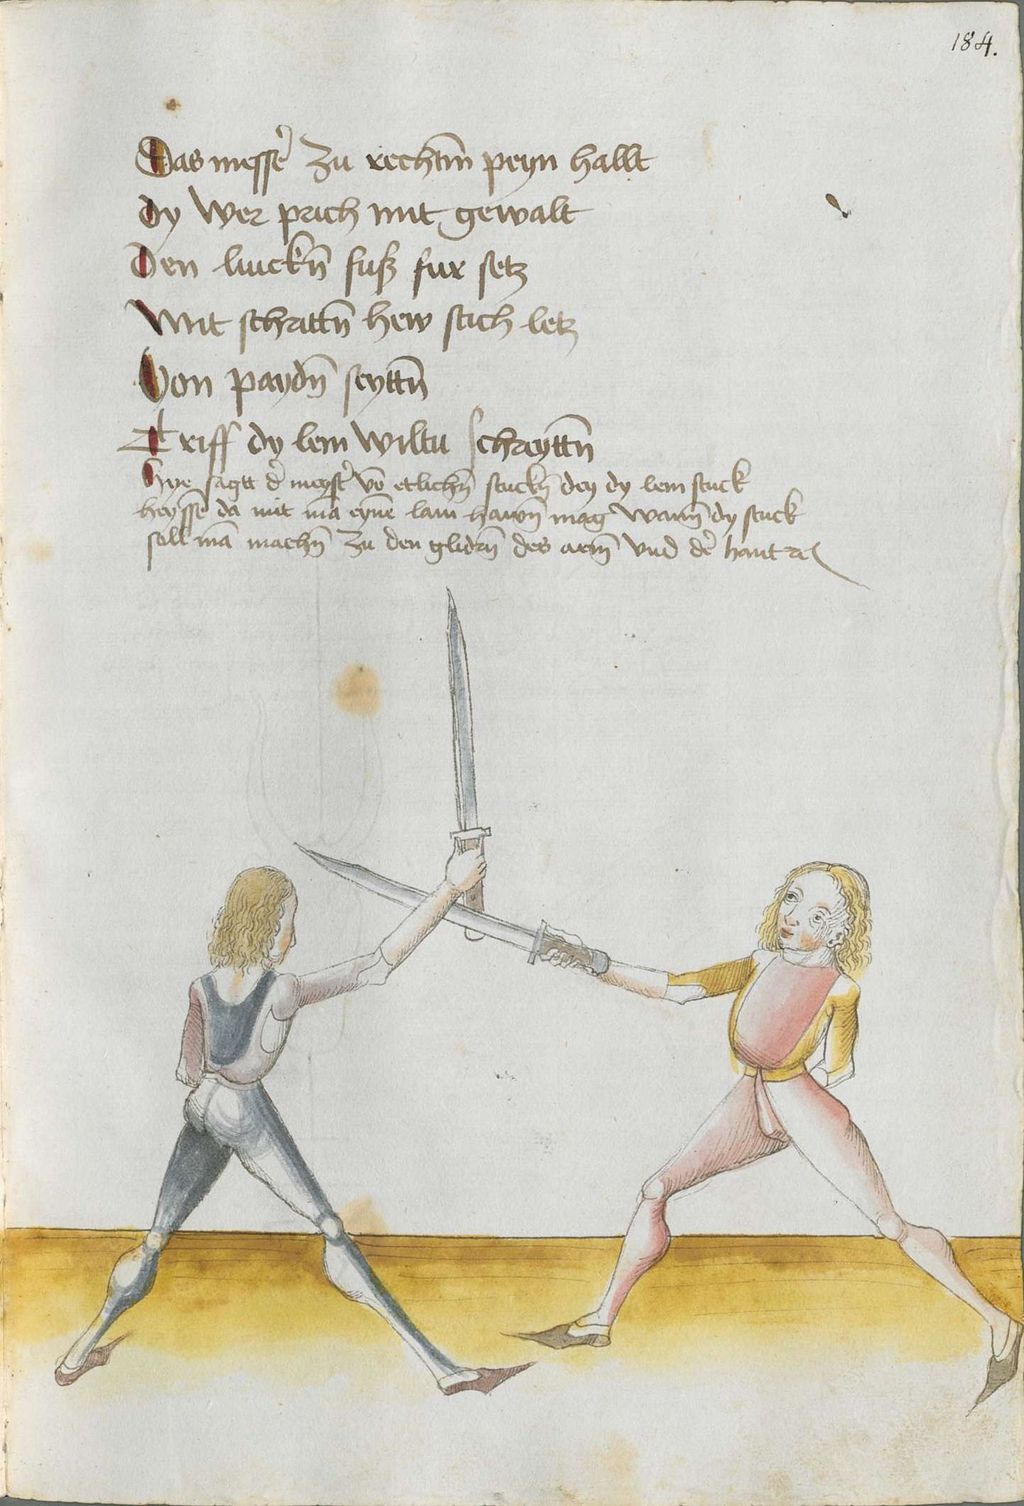 184.
Das messer̄ Zu rechtm̄ peyn hallt
dy wer prich mit gewalt
Den linckn̄ fuß fur setz
Mit schrittn̄ hew stich letz
Von paydn̄ seyttn̄
Triff dy lem wiltu schreyttn̄
Hye sagtt d̄ meystr̄ vō etlichn̄ stuckn̄ dey dy lem stuck
heyssē da mit mā eynē lam hawn̄ mag Wann̄ dy stuck
soll mā machn̄ Zu den glidrn̄ des arm̄ vnd d̄ hant